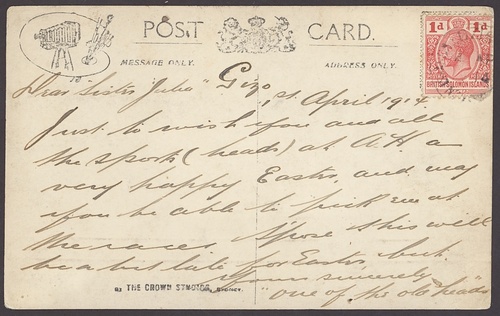 POST CARD.
MESSAGE ONLY.
ADDRESS ONLY.
1d 1d
BRITISH SOLOMON ISLANDS
Dear Sister Julia" Gizo, 1st April 1914.
Just to wish you and all
the sports (heads) at A.H a
very happy Easter, and may
you be able to pick em at
the races. 'Spose this will
be a bit late for Easter but
yours sincerely
"one of the old heads"
THE CROWN STUDIOS, SYDNEY.